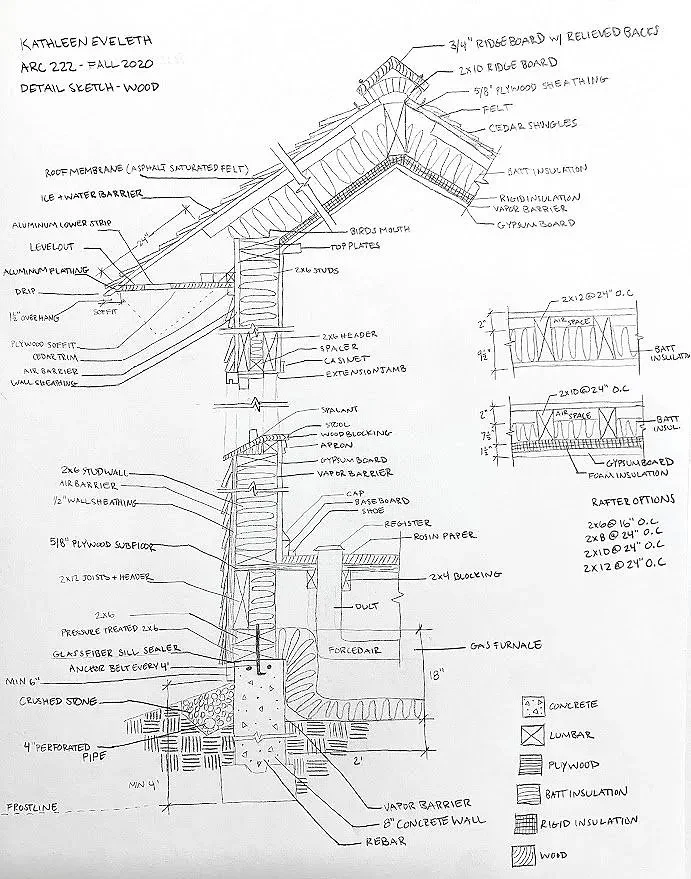 KATHLEEN EVELETH
ARC 222 - FALL 2020
DETAIL SKETCH - WOOD
3/4" RIDGEBOARD W/ RELIEVED BACKS
2X10 RIDGE BOARD
5/8" PLYWOOD SHEATHING
FELT
CEDAR SHINGLES
BATT INSULATION
RIGID INSULATION
VAPOR BARRIER
GYPSUM BOARD
ROOF MEMBRANE (ASPHALT SATURATED FELT)
ICE + WATER BARRIER
24"
ALUMINUM LOWER STRIP
LEVEL OUT
ALUMINUM PLATING
DRIP
1 1/2" OVERHANG
SOFFIT
PLYWOOD SOFFIT
CEDAR TRIM
AIR BARRIER
WALL SHEATHING
BIRDS MOUTH
TOP PLATES
2X6 STUDS
2X6 HEADER
SPACER
CASINET
EXTENSION JAMB
SEALANT
STOOL
WOOD BLOCKING
APRON
GYPSUM BOARD
VAPOR BARRIER
2X6 STUD WALL
AIR BARRIER
1/2" WALL SHEATHING
5/8" PLYWOOD SUBFLOOR
2X12 JOISTS + HEADER
2X6
PRESSURE TREATED 2X6
GLASS FIBER SILL SEALER
ANCHOR BELT EVERY 4'
MIN 6"
CRUSHED STONE
4" PERFORATED
PIPE
MIN 4'
FROSTLINE
CAP
BASEBOARD
SHOE
REGISTER
ROSIN PAPER
2X4 BLOCKING
DULT
FORCED AIR
GAS FURNALE
18"
2'
VAPOR BARRIER
8" CONCRETE WALL
REBAR
2X12 @ 24" O.C
2"
AIR SPACE
9 1/2"
BATT
INSULATIO
2X10 @ 24" O.C
2"
AIR SPACE
7 1/2"
1 1/2"
BATT
INSUL.
GYPSUM BOARD
FOAM INSULATION
RAFTER OPTIONS
2X6 @ 16" O.C
2X8 @ 24" O.C
2X10 @ 24" O.C
2X12 @ 24" O.C
CONCRETE
LUMBAR
PLYWOOD
BATT INSULATION
RIGID INSULATION
WOOD